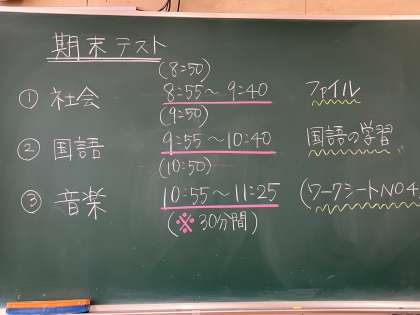 期末テスト
(8:50)
① 社会 8:55～9:40 ファイル
(9:50)
② 国語 9:55～10:40 国語の学習
(10:50)
③ 音楽 10:55～11:25 (ワークシートNO4
(※30分間)